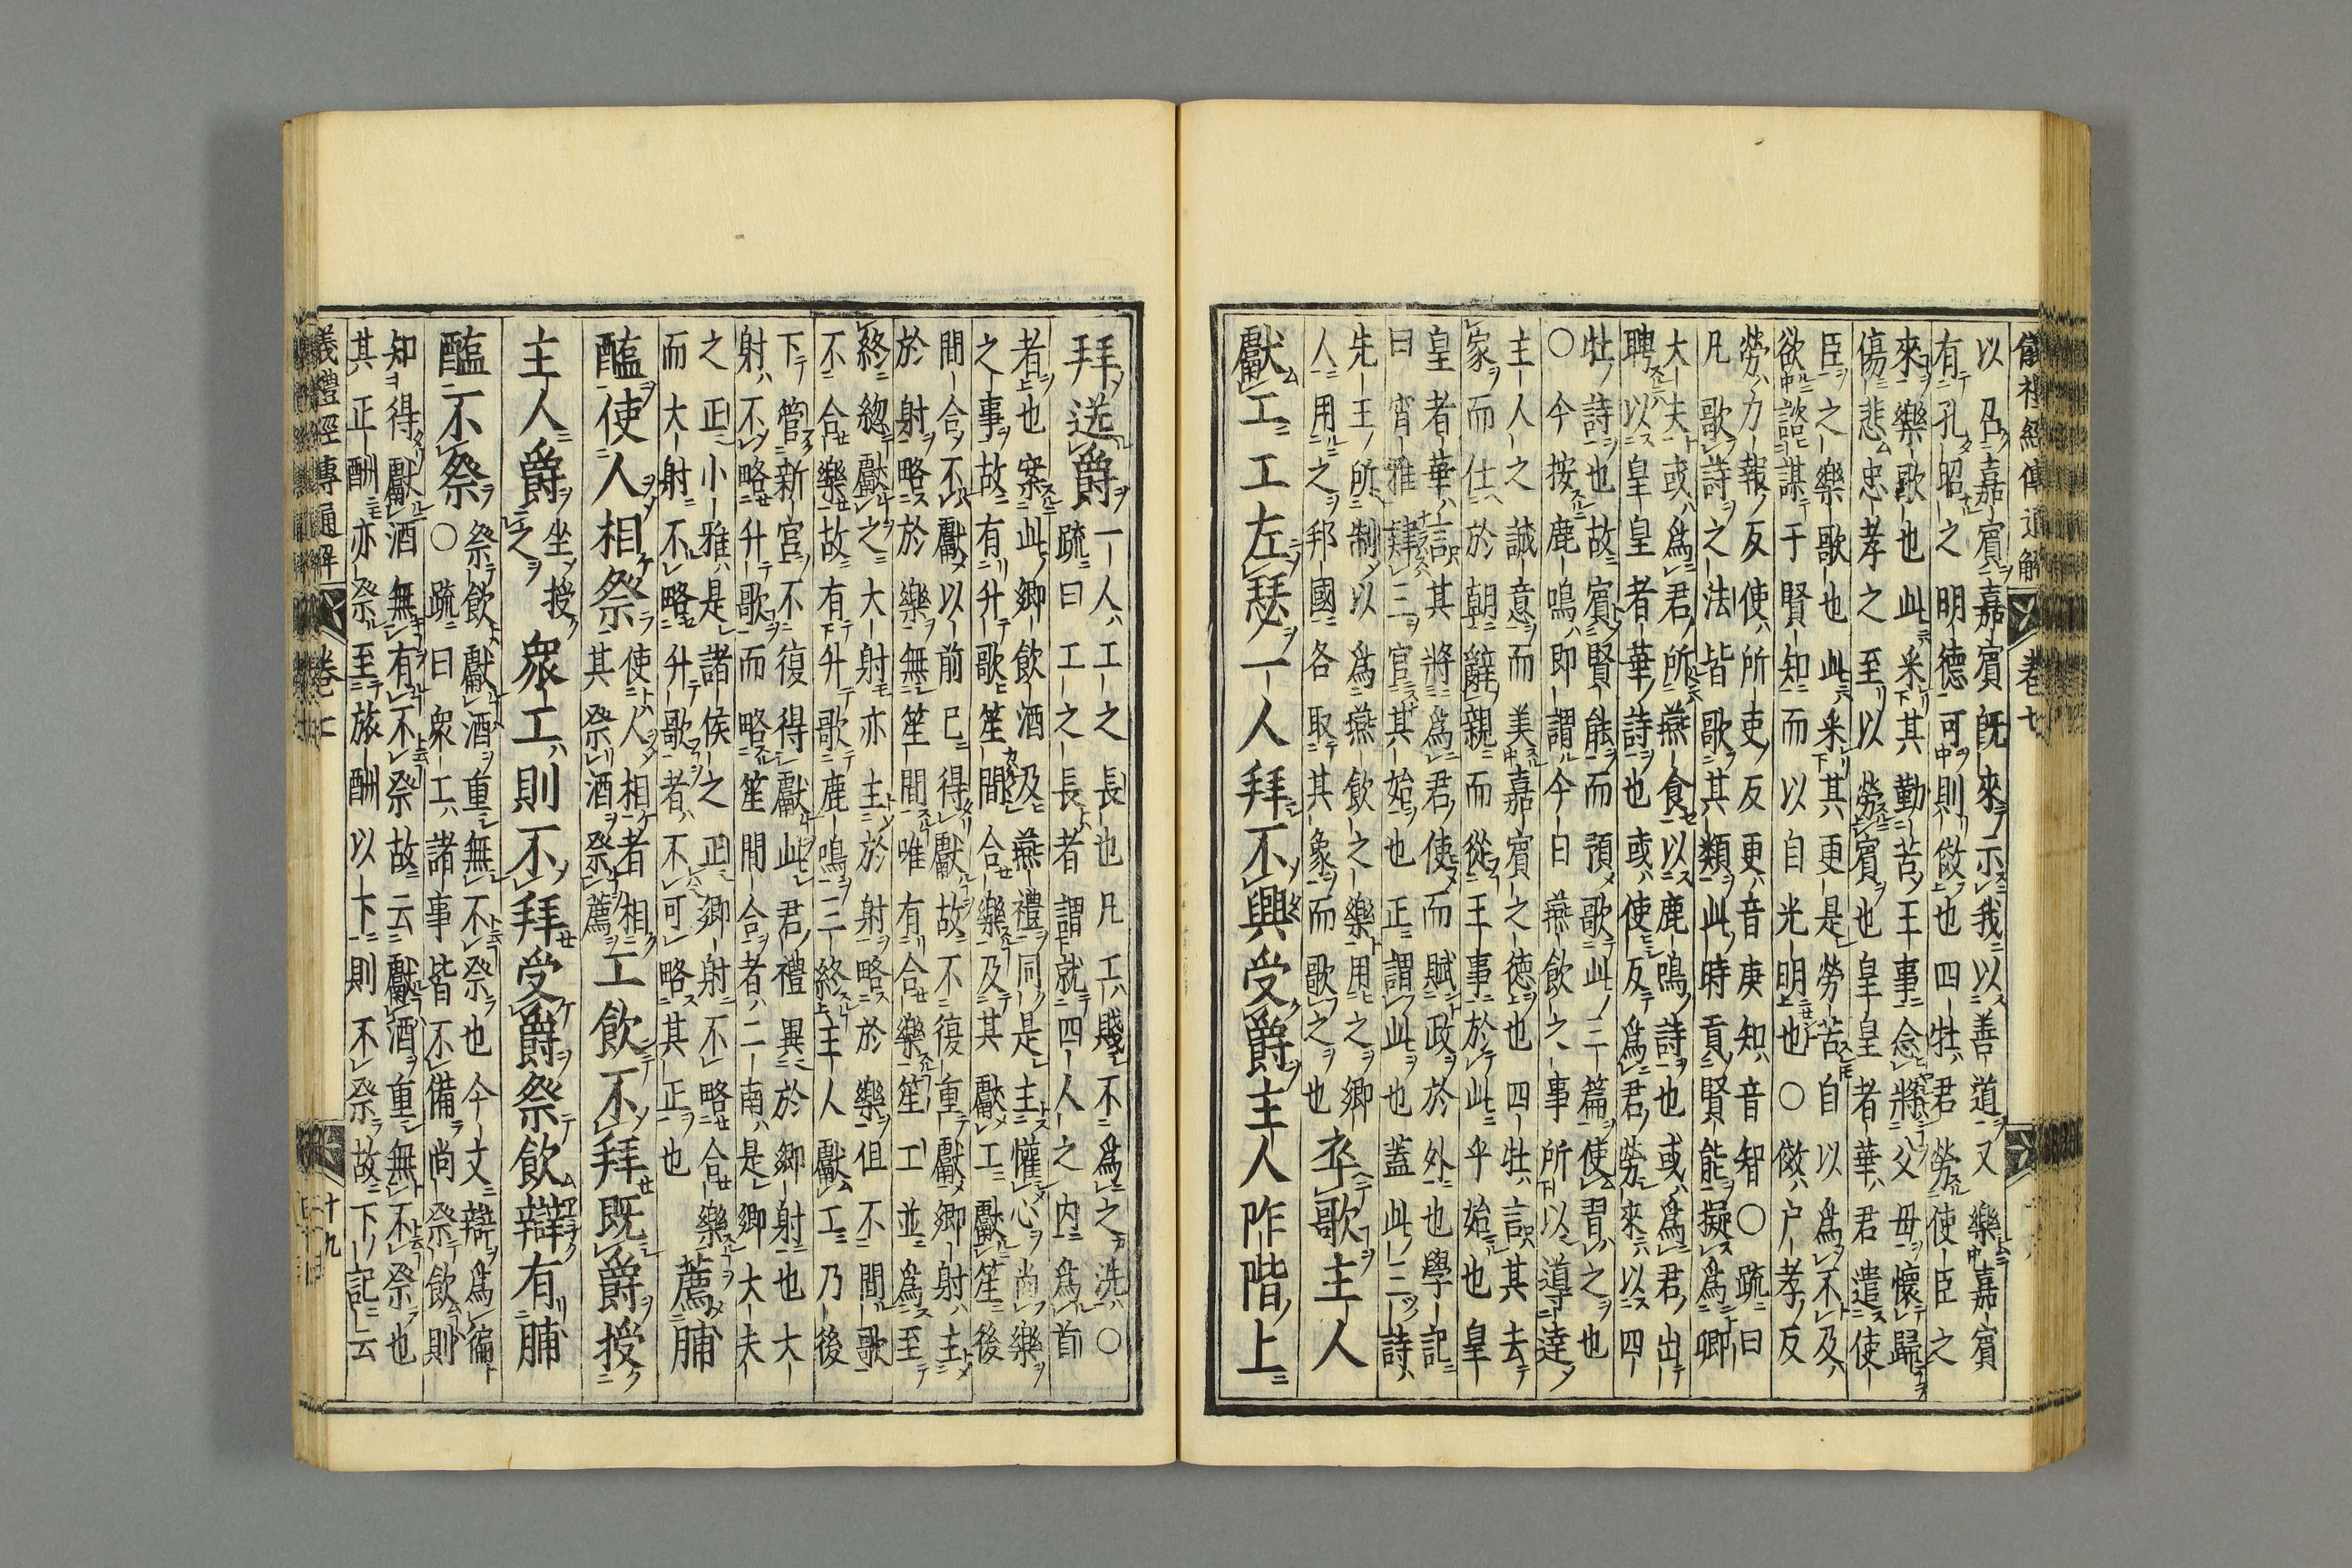 儀禮經傳通解 卷七
以召嘉賓嘉賓既來示我以善道又樂嘉賓
有孔昭之明德可則傚也四牡君勞使臣之
來樂歌也此采其勤苦王事念將父母懷歸
傷悲忠孝之至以勞賓也皇皇者華君遣使
臣之樂歌也此采其更是勞苦自以爲不及
欲諮謀于賢知而以自光明也○傚户孝反
勞力報反使所吏反更音庚知音智○疏曰
凡歌詩之法皆歌其類此時貢賢能擬爲卿
大夫或爲君所燕食以鹿鳴詩也或爲君出
聘以皇皇者華詩也或使反爲君勞來以四
牡詩也故賓賢能而預歌此三篇使習之也
○今按鹿鳴即謂今日燕飲之事所以導達
主人之誠意而美嘉賓之德也四牡言其去
家而仕於朝辭親而從王事於此乎始也皇
皇者華言其將爲君使而賦政於外也學記
曰宵雅肄三官其始也正謂此也蓋此三詩
先王所制以爲燕飲之樂用之卿
人用之邦國各取其象而歌之也
卒歌主人
獻工工左瑟一人拜不興受爵主人阼階上
拜送爵
一人工之長也凡工賤不爲之洗○
疏曰工之長者謂就四人之内爲首
者也案此鄉飲酒及燕禮同是主懽心尚樂
之事故有升歌笙間合樂及其獻工獻笙後
間合不獻以前已得獻故不復重獻鄉射主
於射略於樂無笙間唯有合樂笙工並爲至
終緫獻之大射亦主於射略於樂但不間歌
不合樂故有升歌鹿鳴三終主人獻工乃後
下管新宮不復得獻此君禮異於鄉射也大
射不略升歌而略笙間合者二南是鄉大夫
之正小雅是諸侯之正鄉射不略合樂
而大射不略升歌者不可略其正也
薦脯
醢使人相祭
使人相者相
其祭酒祭薦
工飲不拜既爵授
主人爵
坐授
之
衆工則不拜受爵祭飲辯有脯
醢不祭
祭飲獻酒重無不祭也今文辯爲徧
○疏曰衆工諸事皆不備尚祭飲則
知得獻酒無有不祭故云獻酒重無不祭也
其正酬亦祭至旅酬以下則不祭故下記云
義禮經傳通解 卷七 十九